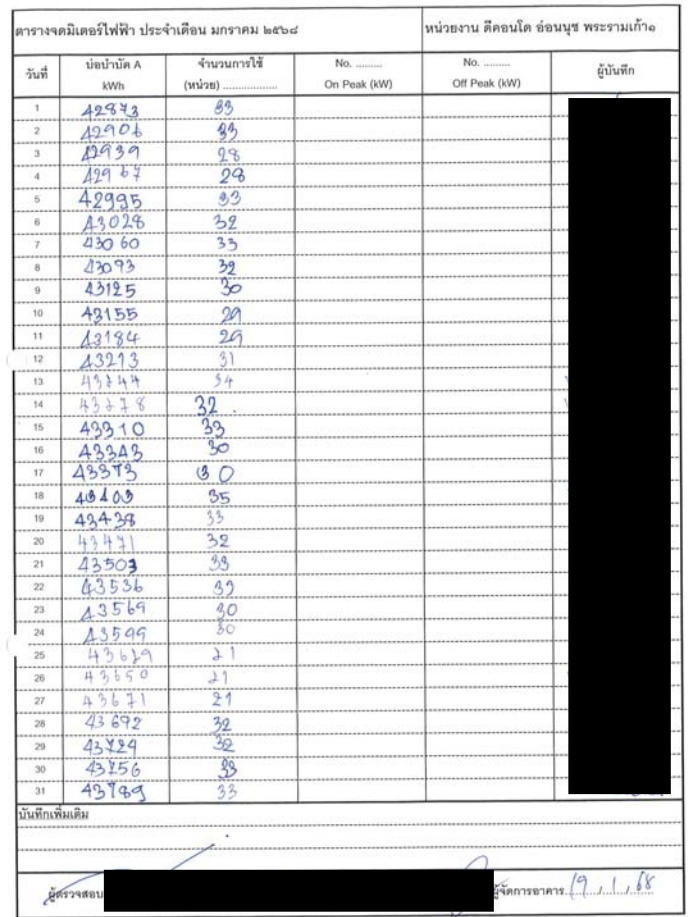 ตารางจดมิเตอร์ไฟฟ้า ประจำเดือน มกราคม ๒๕๖๘ หน่วยงาน ดีคอนโด อ่อนนุช พระรามเก้า๑
วันที่ บ่อบำบัด A จำนวนการใช้ No. ......... No. ......... ผู้บันทึก
kWh (หน่วย) .................. On Peak (kW) Off Peak (kW)
1 42873 33
2 42906 33
3 42939 28
4 42967 28
5 42995 33
6 43028 32
7 43060 33
8 43093 32
9 43125 30
10 43155 29
11 43184 29
12 43213 31
13 43244 34
14 43278 32
15 43310 33
16 43343 30
17 43373 30
18 43403 35
19 43438 33
20 43471 32
21 43503 33
22 43536 33
23 43569 30
24 43599 30
25 43629 21
26 43650 21
27 43671 21
28 43692 32
29 43724 32
30 43756 33
31 43789 33
บันทึกเพิ่มเติม
ผู้ตรวจสอบ ผู้จัดการอาคาร 19 / 1 / 68